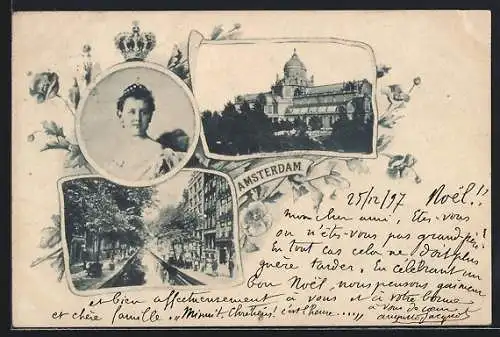 AMSTERDAM
25/12/97 Noël!!
Mon cher ami, Etes-vous
ou n'êtes-vous pas grand-père?
En tout cas cela ne doit plus
guère tarder. En célébrant un
bon Noël, nous pensons
et bien affectueusement à vous et à votre bonne
et chère famille. „Minuit, Chrétiens! c'est l'heure....."
à vous de cœur